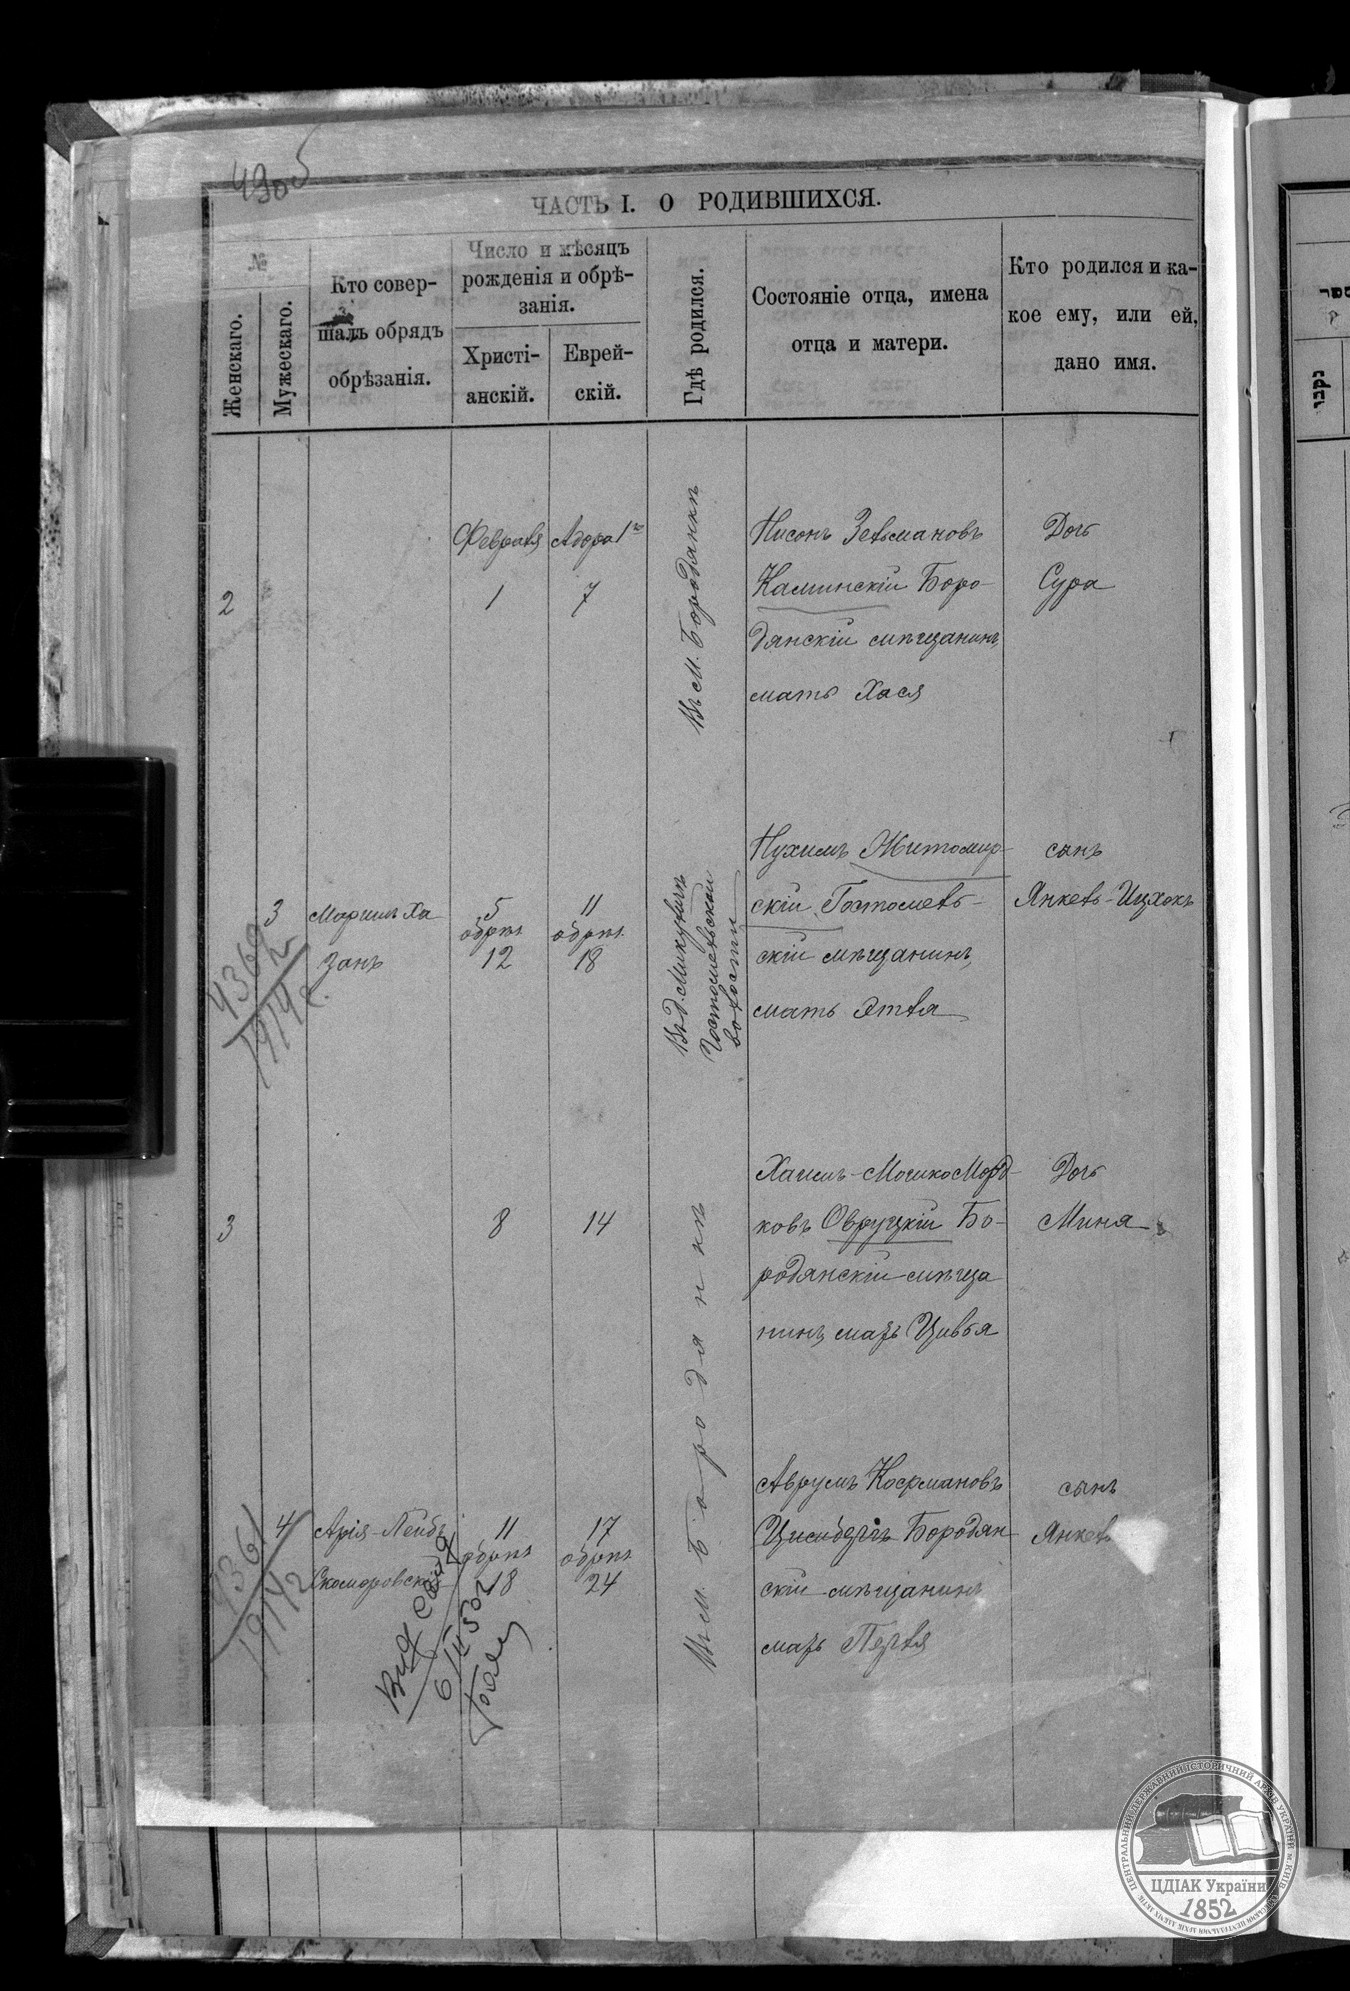 49об
ЧАСТЬ I. О РОДИВШИХСЯ.
№
Женскаго.
Мужескаго.
Кто совер-
шалъ обрядъ
обрѣзанія.
Число и мѣсяцъ
рожденія и обрѣ-
занія.
Христі-
анскій.
Еврей-
скій.
Гдѣ родился.
Состояніе отца, имена
отца и матери.
Кто родился и ка-
кое ему, или ей,
дано имя.
2
Февраля
1
Адора 1го
7
Въ м. Бородянкѣ
Нисонъ Зельмановъ
Каминскій Боро-
дянскій мѣщанинъ,
мать Хася
Дочь
Сура
3
Моршиъ Ха
занъ
5
обрѣз.
12
11
обрѣз.
18
Въ д. Микуличѣ
Гостомельской
волости
Нухимъ Житомир-
скій Гостомель-
скій мѣщанинъ,
мать Этля
сынъ
Янкель-Ицхокъ
4360
1914 г.
3
8
14
Въ м. Бородянкѣ
Хаимъ-Мошко Морд-
ковъ Овруцкій Бо-
родянскій мѣща
нинъ, мать Цивья
Дочь
Миня
4
Арія-Лейбъ
Скоморовскій
11
обрѣз.
18
17
обрѣз.
24
Аврумъ Косрмановъ
Бородян-
скій мѣщанинъ
мать Перля
сынъ
Янкель
4361
1914
ЦЕНТРАЛЬНИЙ ДЕРЖАВНИЙ ІСТОРИЧНИЙ АРХІВ УКРАЇНИ м. КИЇВ
ЦДІАК України
1852
נקבו